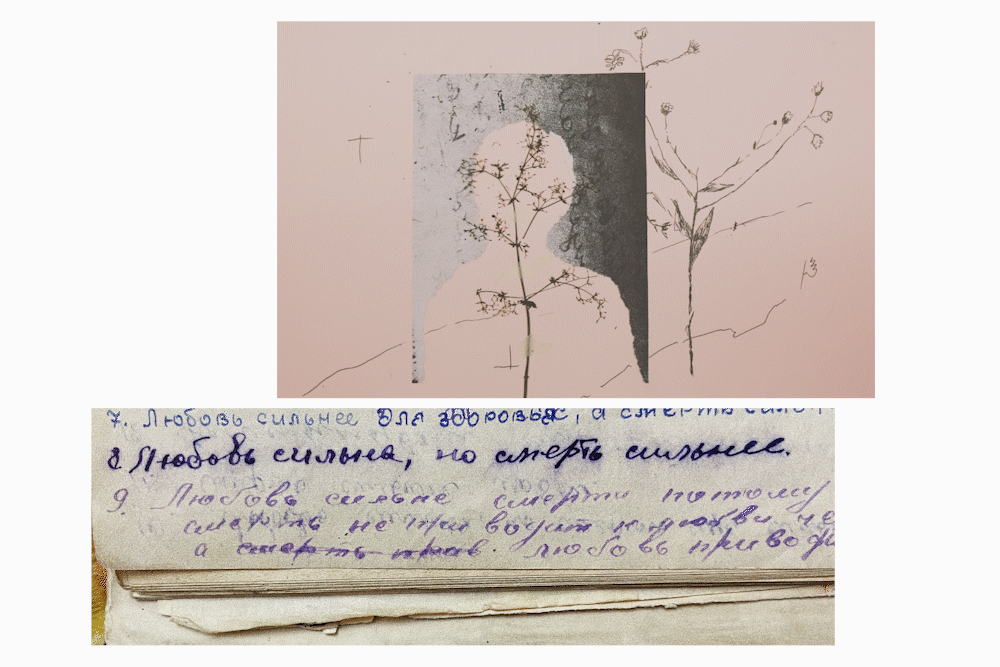 7. Любовь сильнее для здоровья, а смерть
8. Любовь сильна, но смерть сильнее.
9. Любовь сильне смерти потому
смерть не приводит к любви
а смерть прив. любовь